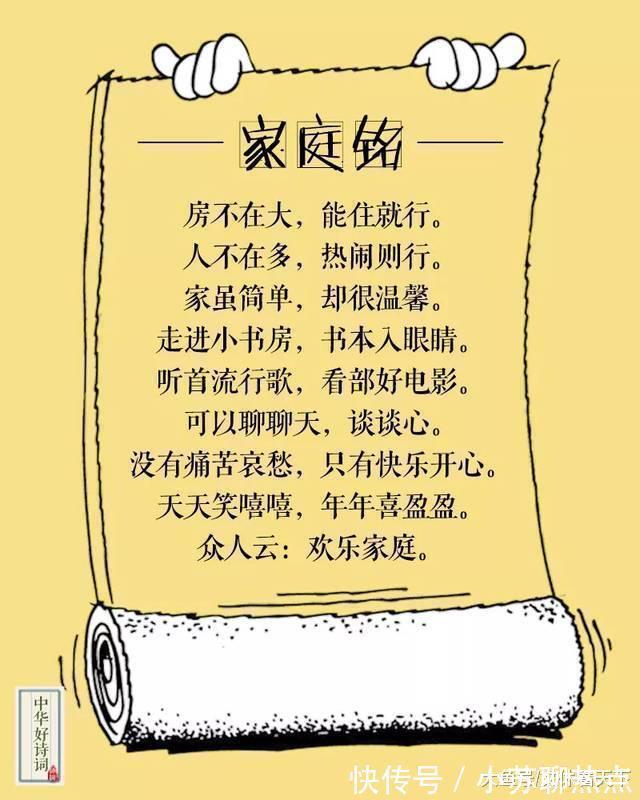 家庭铭
房不在大，能住就行。
人不在多，热闹则行。
家虽简单，却很温馨。
走进小书房，书本入眼睛。
听首流行歌，看部好电影。
可以聊聊天，谈谈心。
没有痛苦哀愁，只有快乐开心。
天天笑嘻嘻，年年喜盈盈。
众人云：欢乐家庭。
中华好诗词
快传号 / 小苏聊热点